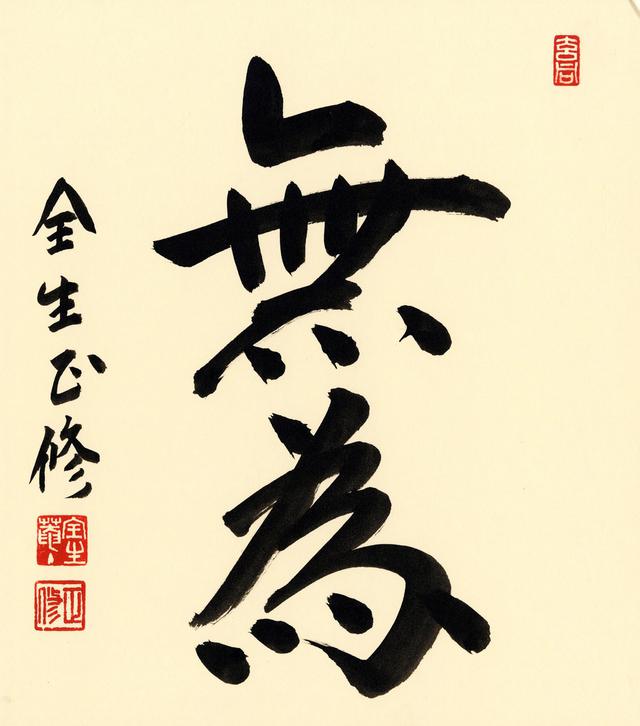 無為
全生正修